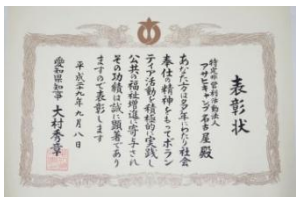 表彰状
特定非営利活動法人
アサヒキャンプ名古屋殿
あなた方は多年にわたり社会
奉仕の精神をもってボラン
ティア活動を積極的に実践し
公共の福祉増進に寄与され
その功績は誠に顕著であり
ますので表彰します
平成二十九年九月八日
愛知県知事 大村秀章